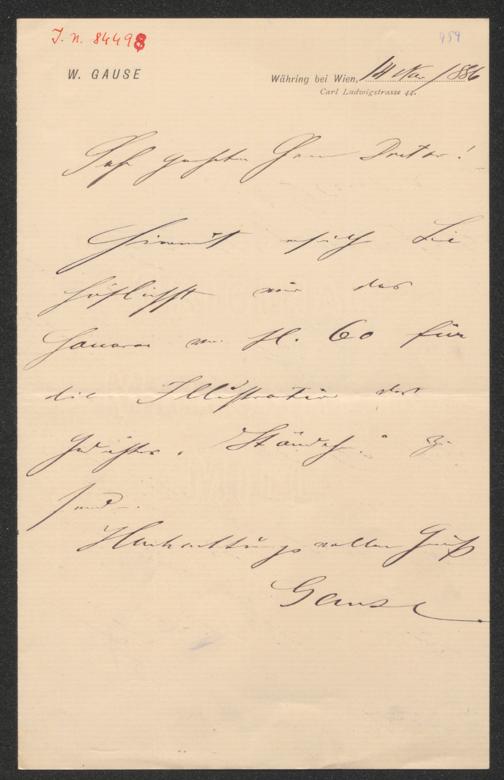 J. N. 84498
959
W. GAUSE
Währing bei Wien, 14 Nov. 1886
Carl Ludwigstrasse 44.
Sehr geehrter Herr Doctor!
Hiermit ersuche ich Sie
höflichst mir das
Honorar von fl. 60 für
die Illustration des
Gedichtes " Ständch." zu
send.
Hochachtungsvollen Gruß
Gause